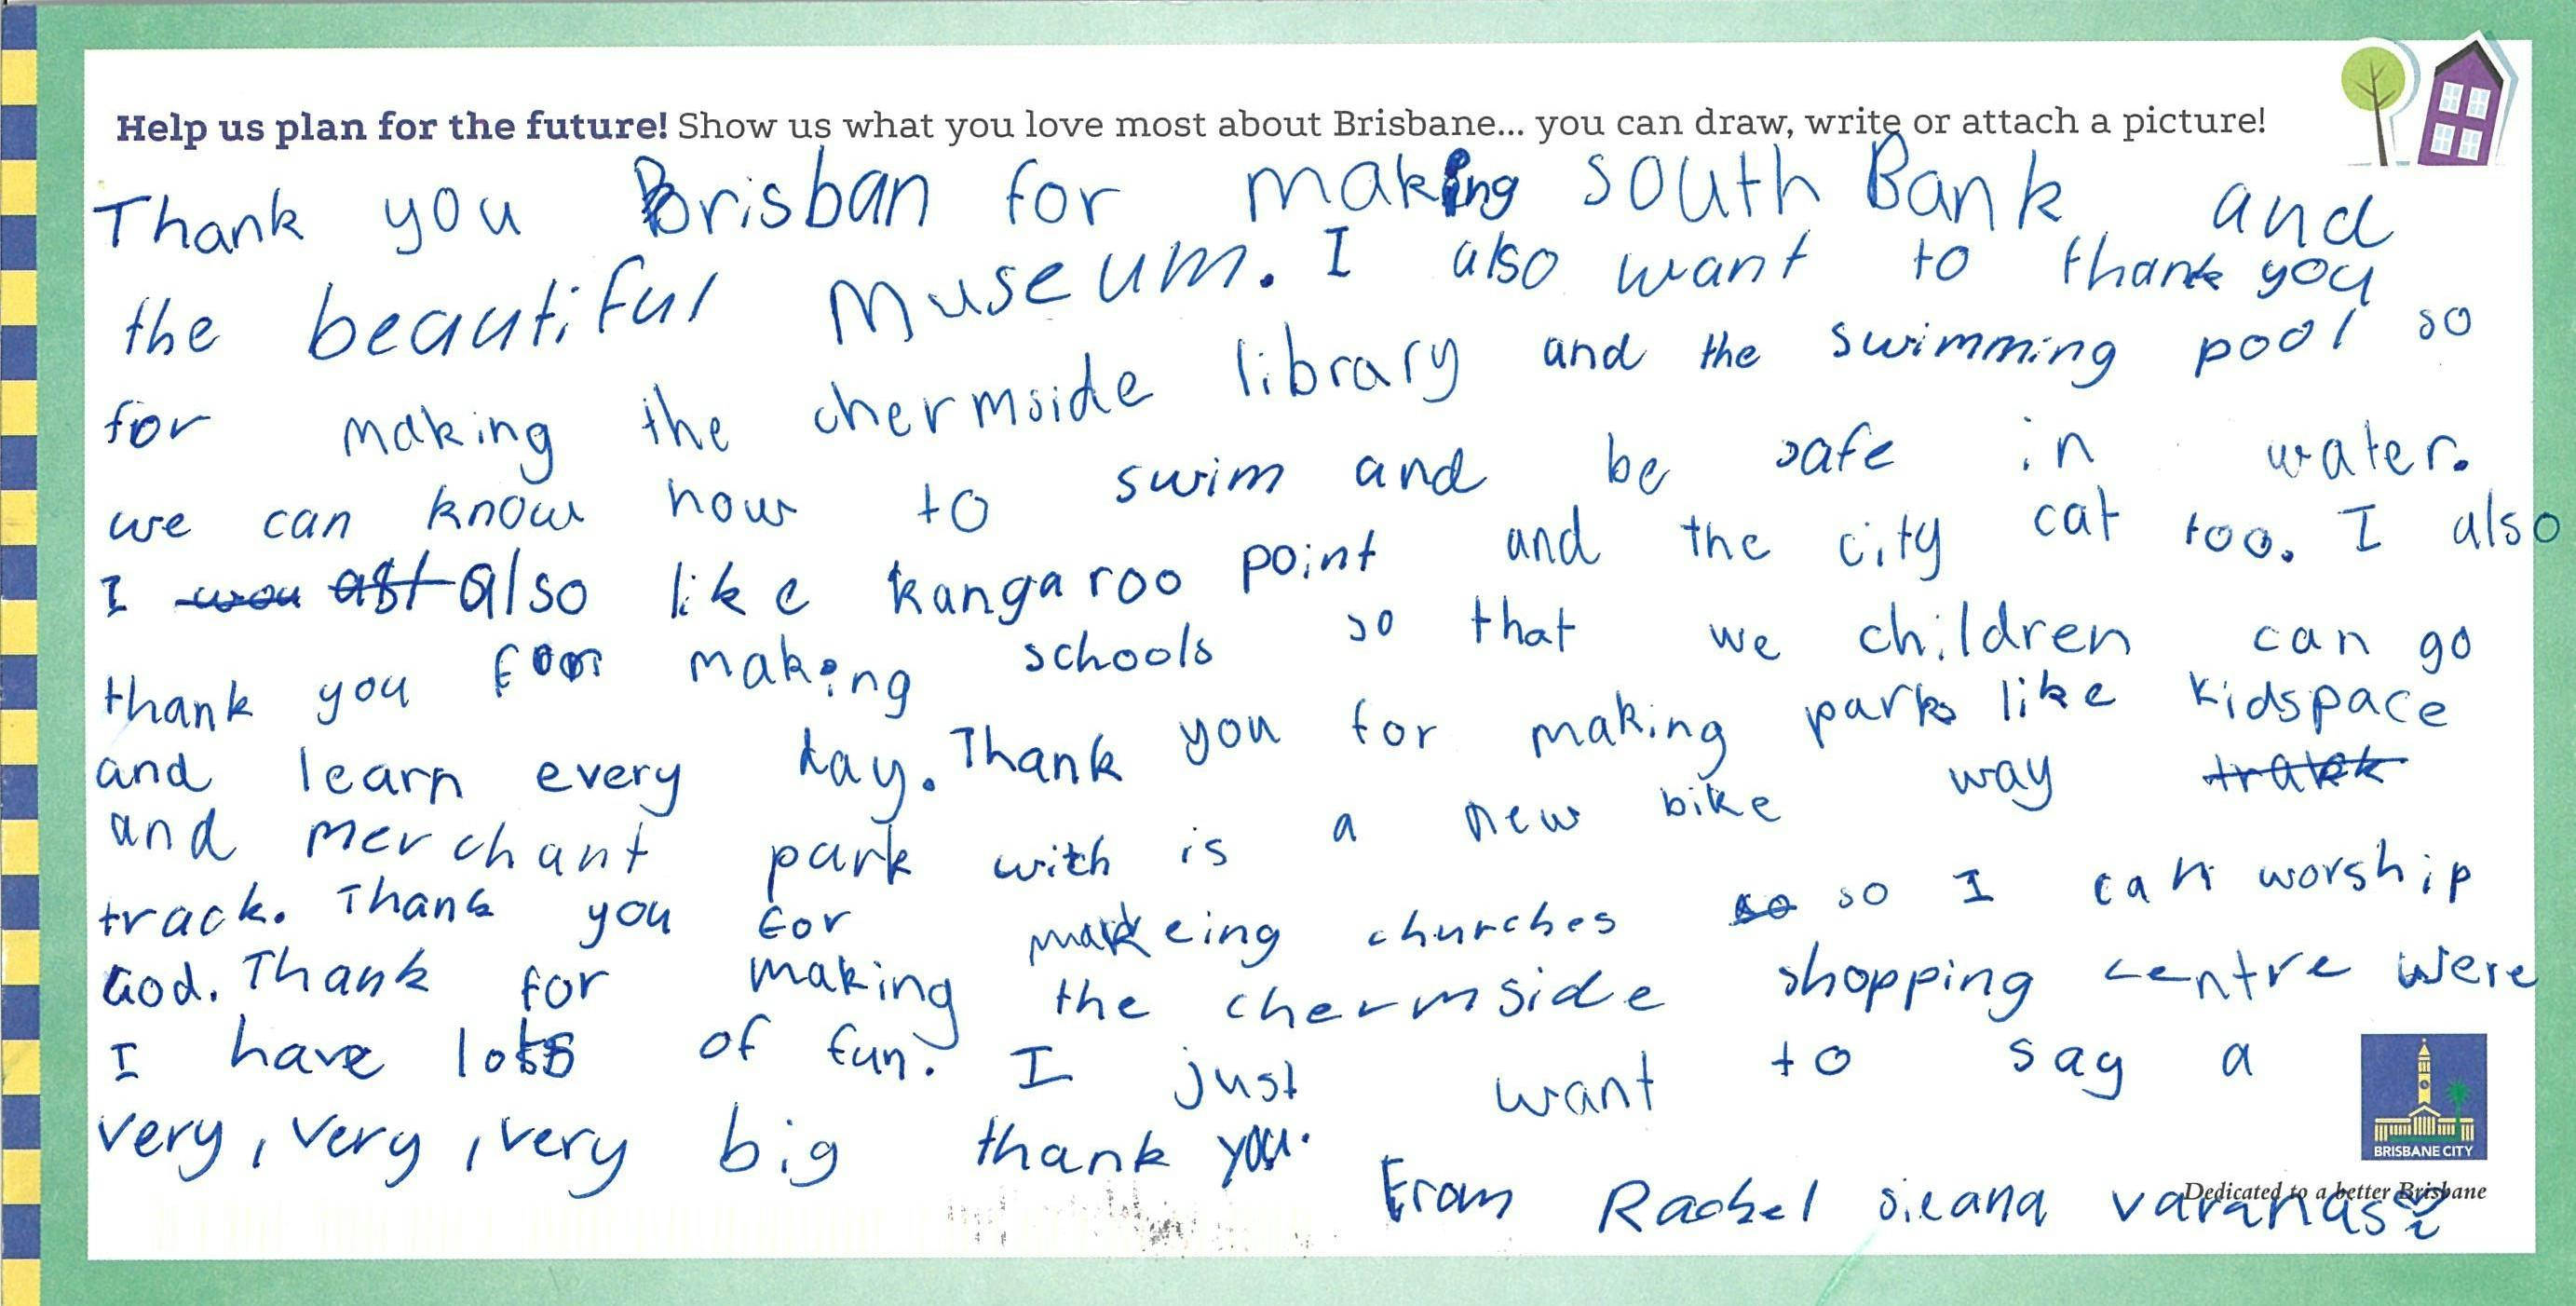 Help us plan for the future! Show us what you love most about Brisbane... you can draw, write or attach a picture!
Thank you Brisban for making south Bank and
the beautiful Museum. I also want to thank you
for making the chermside library and the swimming pool so
we can know how to swim and be safe in water.
I also like kangaroo point and the city cat too. I also
thank you for making schools so that we children can go
and learn every day. Thank you for making parks like Kidspace
and merchant park with is a new bike way
track. Thank you for makeing churches so I can worship
God. Thank for making the chermside shopping centre were
I have lots of fun. I just want to say a
very, very, very big thank you.
BRISBANE CITY
Dedicated to a better Brisbane
From Rachel